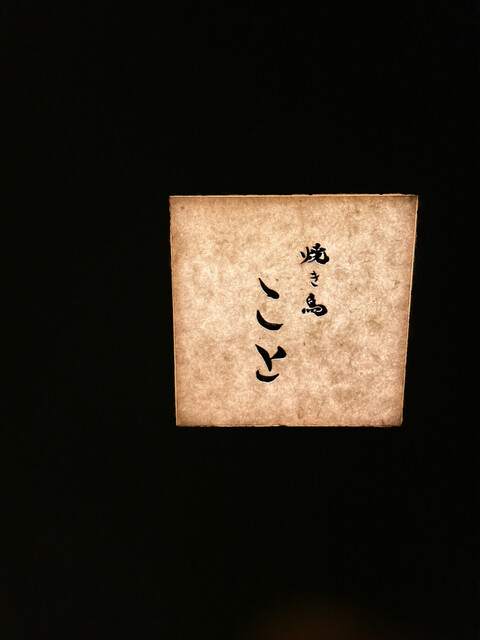 焼き鳥
こと